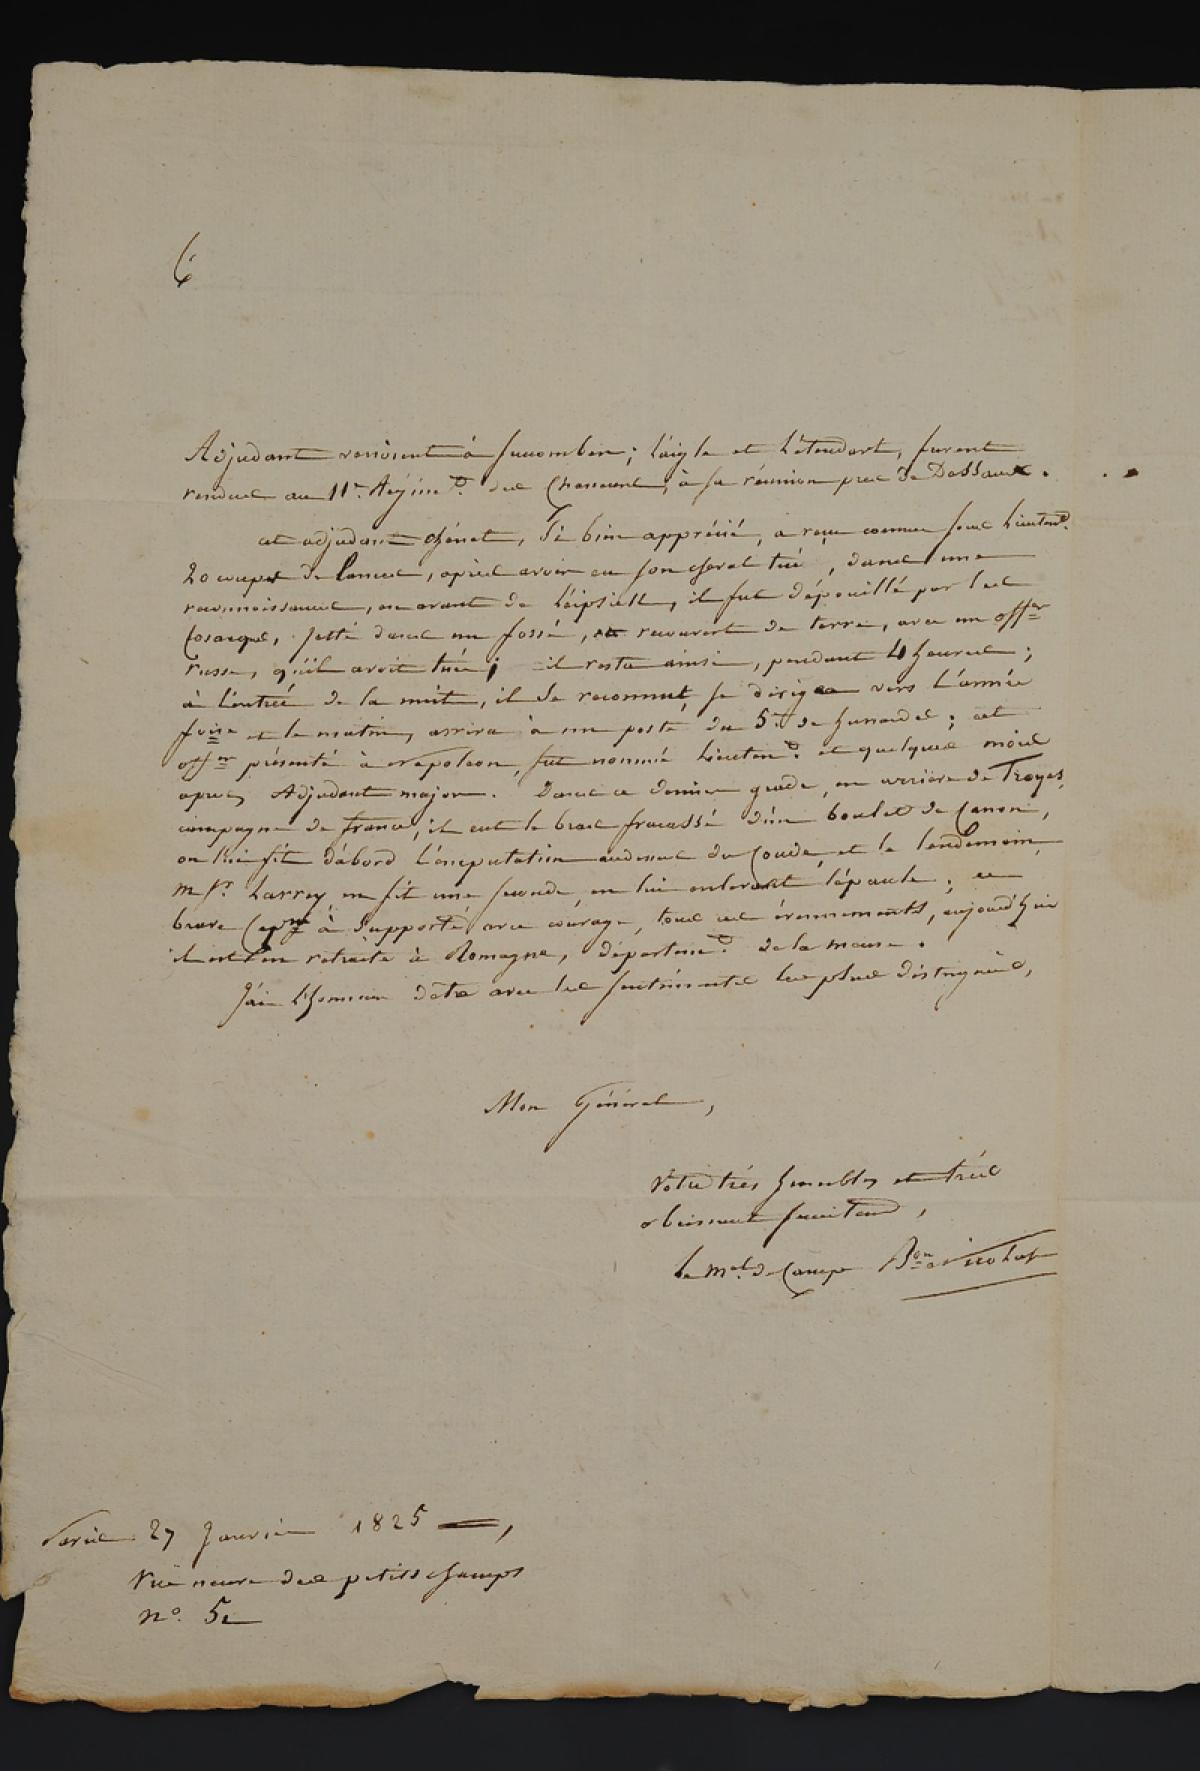 6
Adjudant venoient à succomber; l'aigle et l'étendart, furent
rendues au 11e. Régimt. des Chasseurs, à sa réunion près de Dessau.
cet adjudant Chénet, si bien apprécié, a reçu comme sous Lieutent.
20 coups de lances, après avoir eu son cheval tué, dans une
reconnoissance, en avant de Léipsick, il fut dépouillé par les
Cosaques, jetté dans un fossé, recouvert de terre, avec un offer
russe, qu'il avoit tué; il resta ainsi, pendant 4 heures;
à l'entrée de la nuit, il se reconnut, se dirigea vers l'armée
fçoise et le matin, arriva à un poste du 5e. de hussardes; cet
offer présenté à Napoléon, fut nommé Lieutent. et quelques mois
après Adjudant major. Dans ce dernier grade, en arrière de Troyes,
campagne de france, il eut le bras fracassé d'un boulet de Canon,
on lui fit d'abord l'amputation audessus du Coude, et le lendemain,
mr. Larrey en fit une seconde, en lui enlevant l'épaule; ce
brave Capne à supporté avec courage, tous ces évennements, aujourd'hui
il est en retraite à Romagne, départemt. de la meuse.
J'ai l'honneur d'etre avec les sentiments les plus distingués,
Mon Général,
Votre très humble et très
obeissant serviteur,
le mal. de Camp Bon Nicolas
Paris 27 Janvier 1825
Rue neuve des petits champs
no. 52